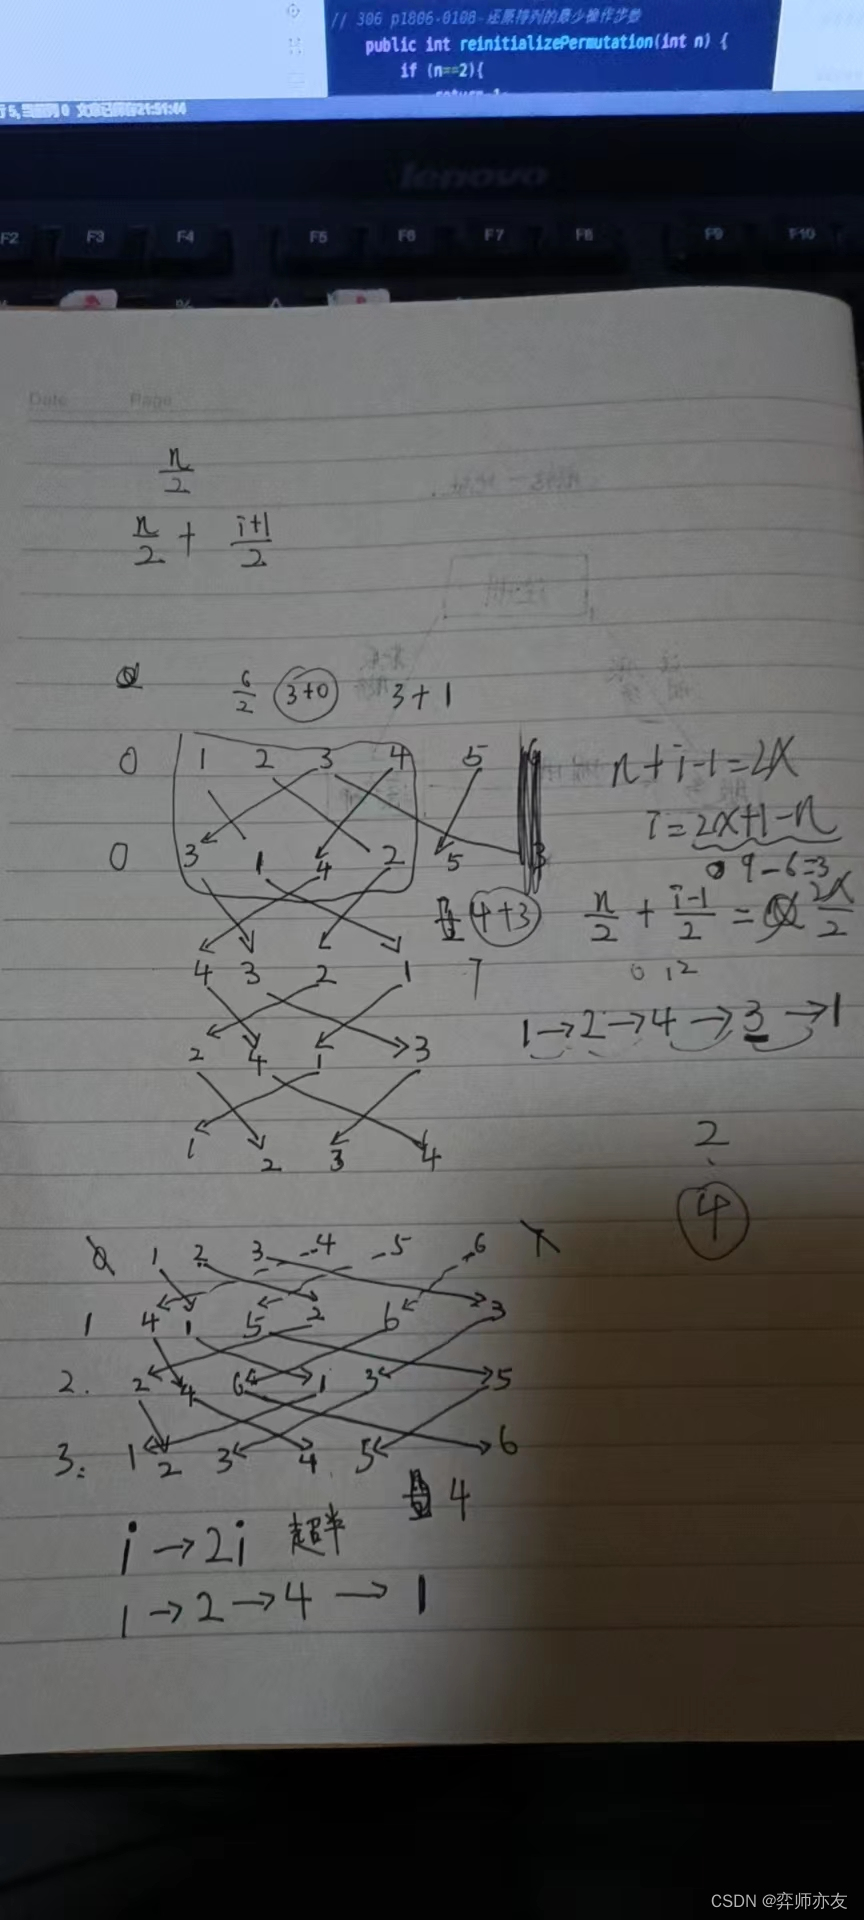 // 306 p1806-0108-还原排列的最少操作步数
public int reinitializePermutation(int n) {
if (n==2){
return 1;
行 5, 当前列 0 文章已保存21:51:44
lenovo
F2 F3 F4 F5 F6 F7 F8 F9 F10
Date Page
n/2
n/2 + i+1/2
6/2 3+0 3+1
0 1 2 3 4 5
n+i-1=2X
i=2X+1-n
0 3 1 4 2 5
9-6=3
4+3
n/2 + i-1/2 = 2X/2
4 3 2 1 7
0 1 2
1→2→4→3→1
2 4 1 3
1 2 3 4
2
4
0 1 2 3 4 5 6
1 4 1 5 2 6 3
2. 2 4 6 1 3 5
3: 1 2 3 4 5 6
4
i→2i 超半
1→2→4→1
CSDN @弈师亦友